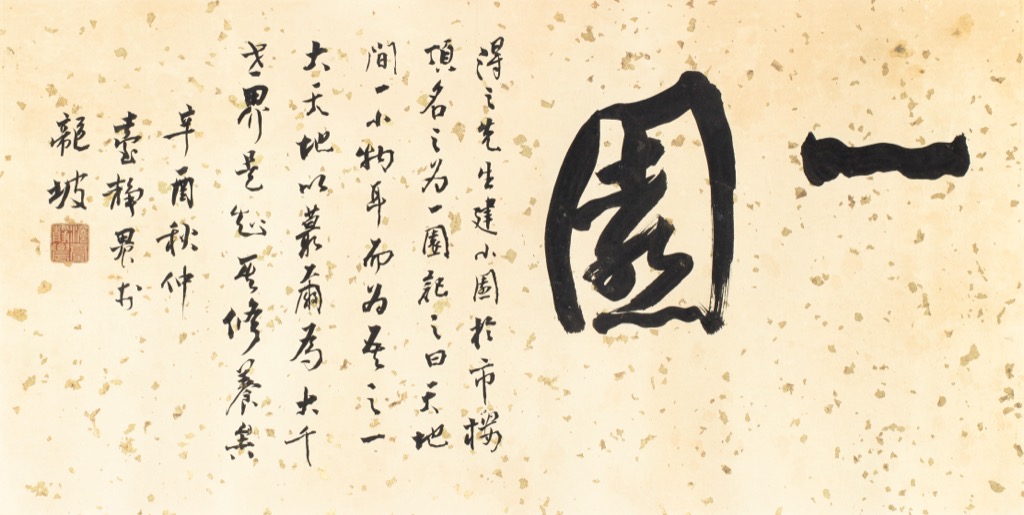 一園
得之先生建小園於市樓
頂名之為一園記之曰天地
間一小物耳而為吾之一
大天地以叢爾為大千
世界是知其修養矣
辛酉秋仲
臺靜農於
龍坡